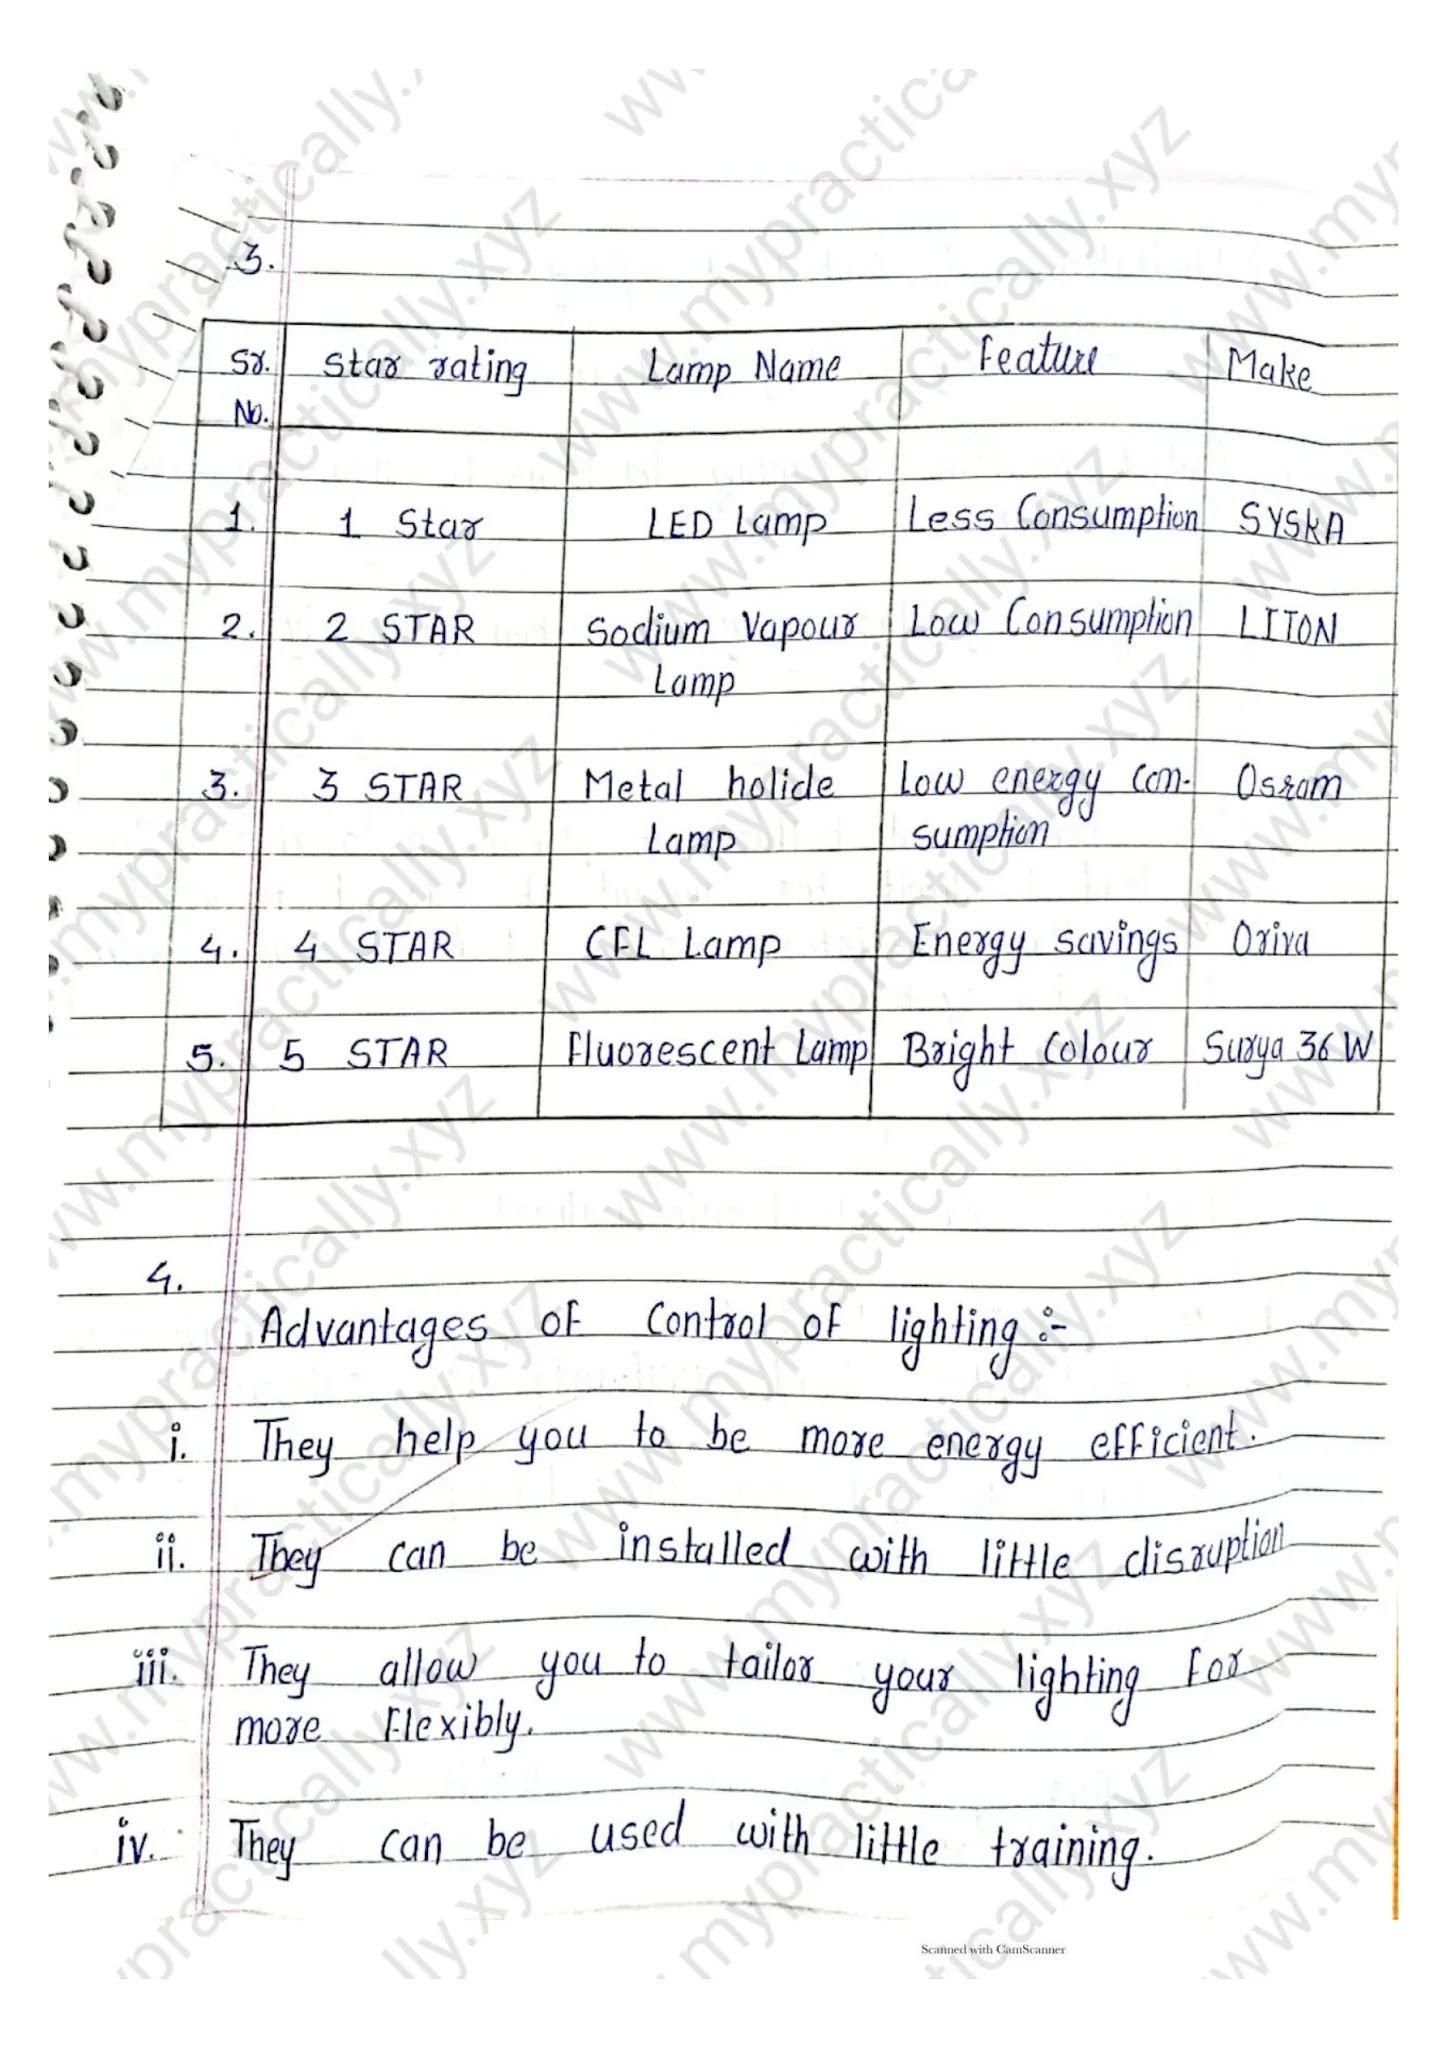 3.
Sr. No. Star rating Lamp Name Feature Make
1. 1 Star LED Lamp Less Consumption SYSKA
2. 2 STAR Sodium Vapour Low Consumption LITON
Lamp
3. 3 STAR Metal holide Low energy con- Osram
Lamp sumption
4. 4 STAR CFL Lamp Energy savings Oriva
5. 5 STAR Fluorescent Lamp Bright Colour Surya 36 W
4.
Advantages of Control of lighting :-
i. They help you to be more energy efficient.
ii. They can be installed with little disruption
iii. They allow you to tailor your lighting for
more flexibly.
iv. They can be used with little training.
Scanned with CamScanner
www.mypractically.xyz